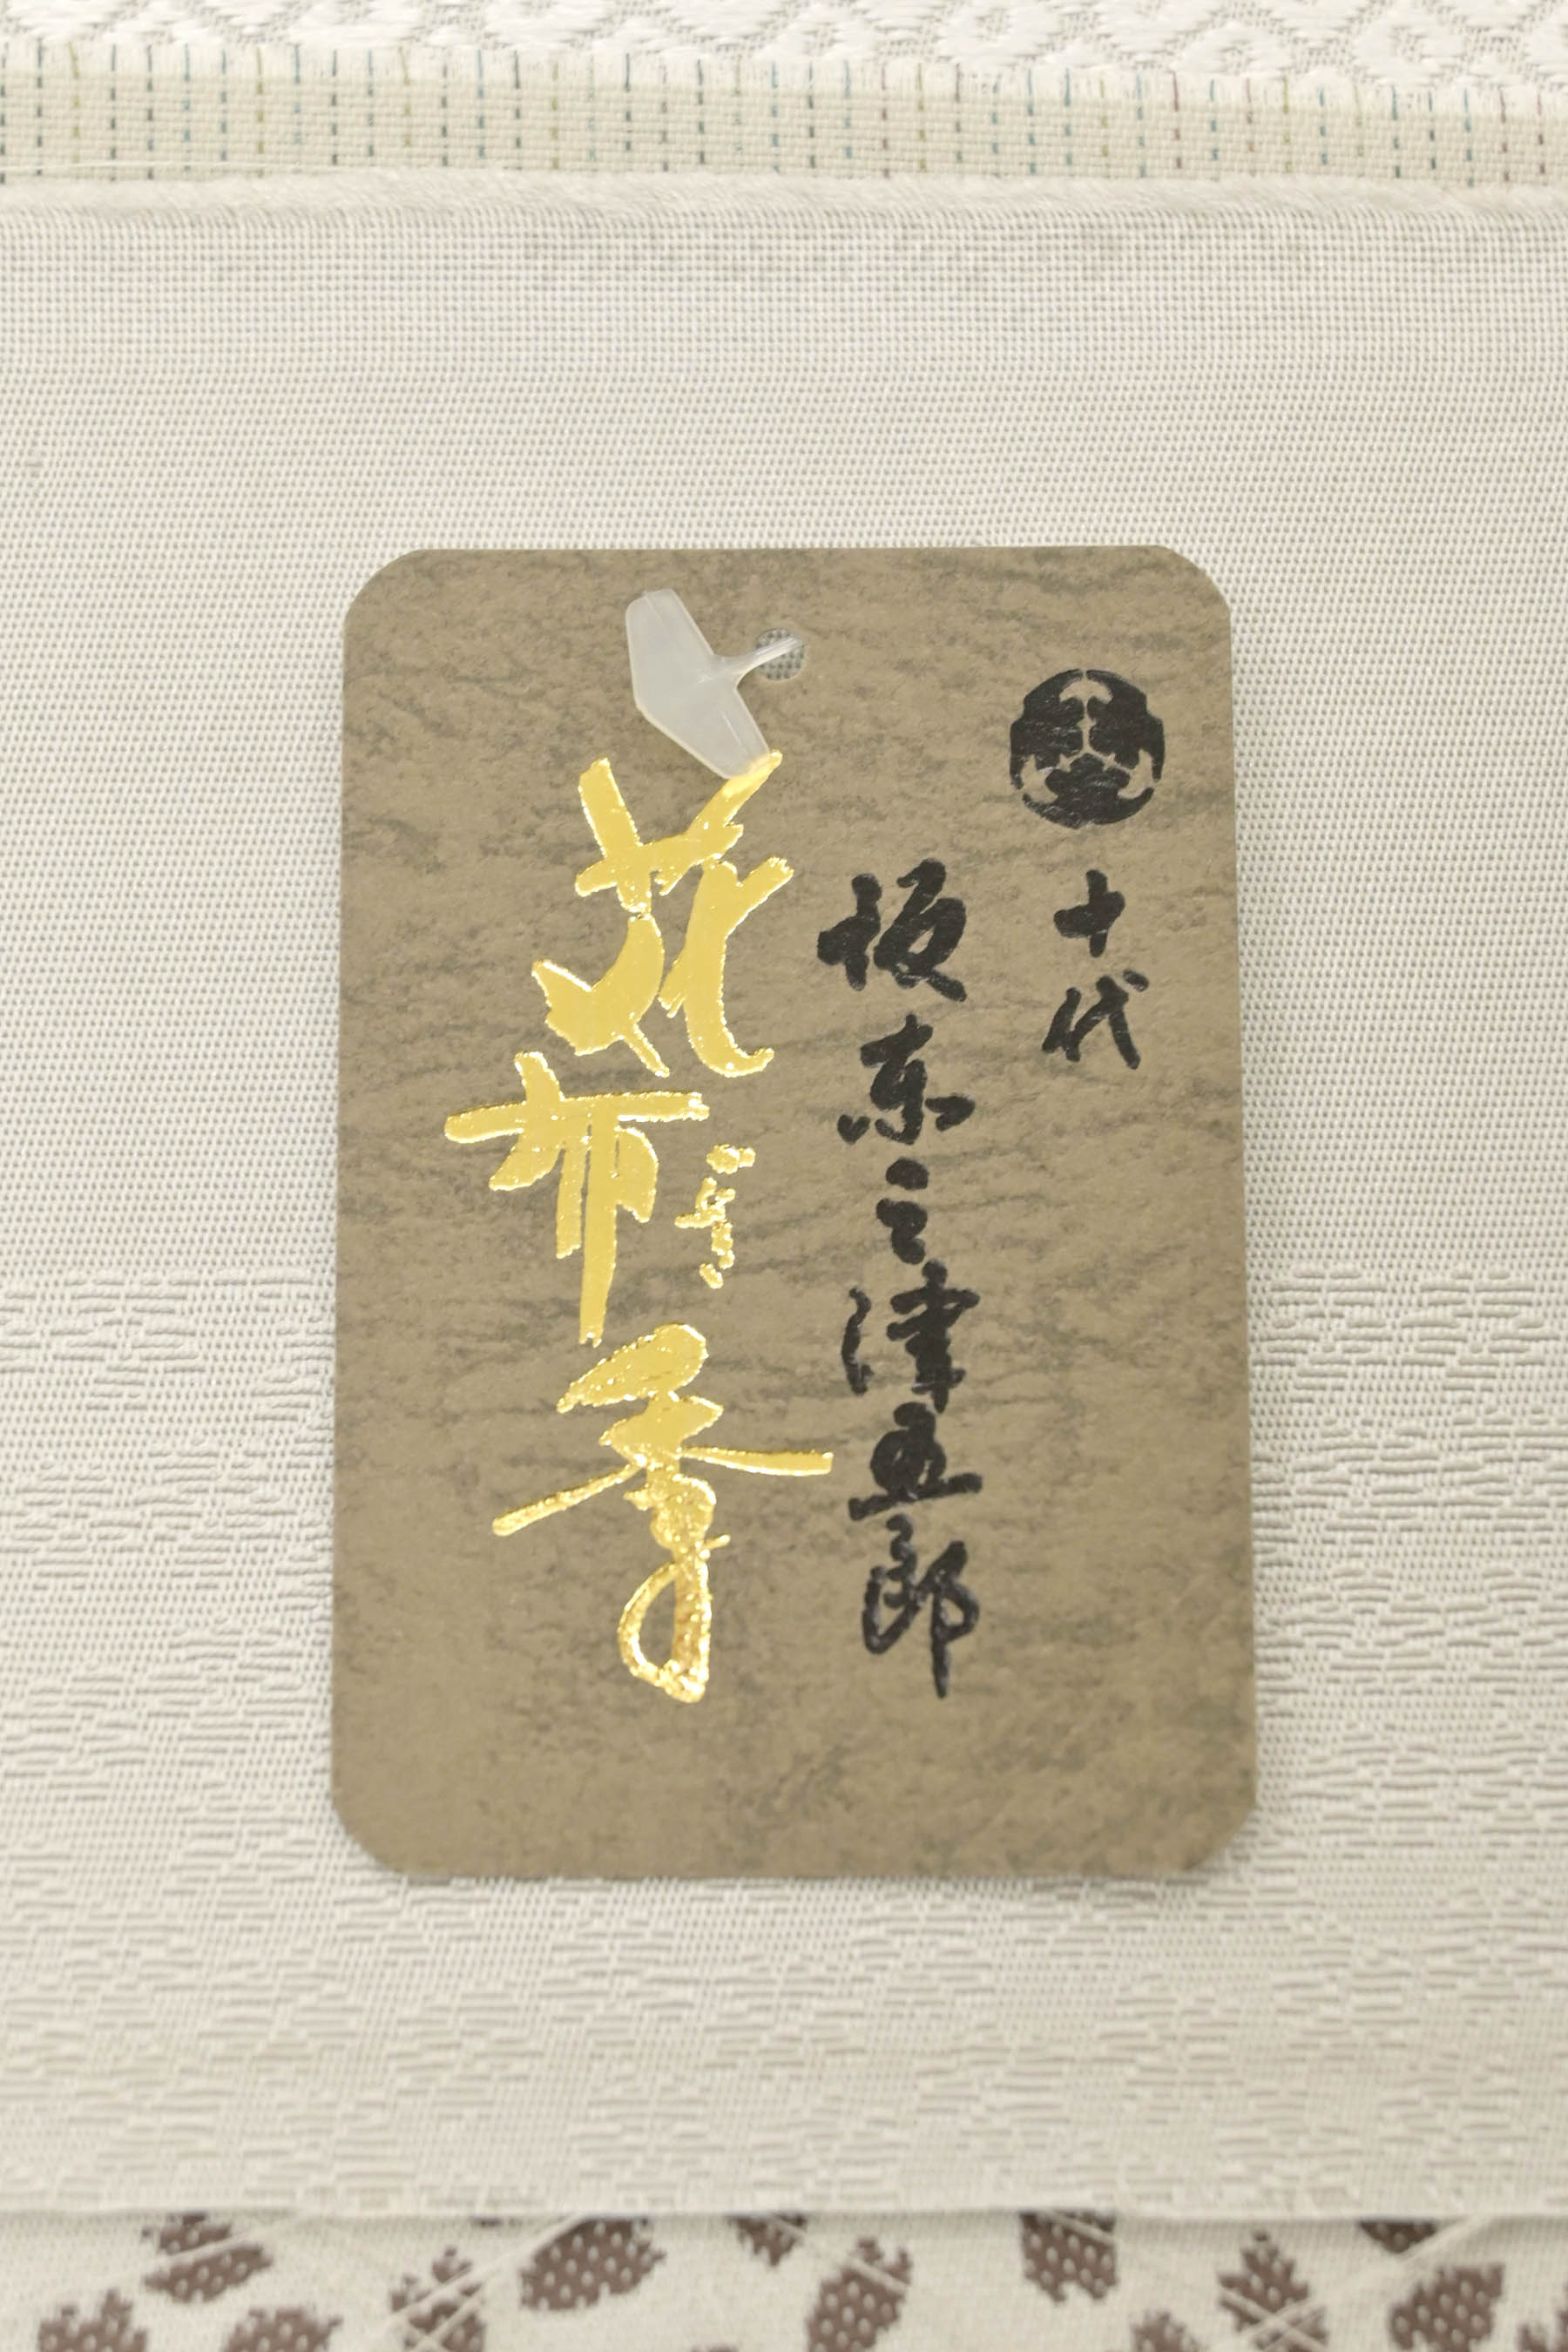 十代
坂東三津五郎
花布季